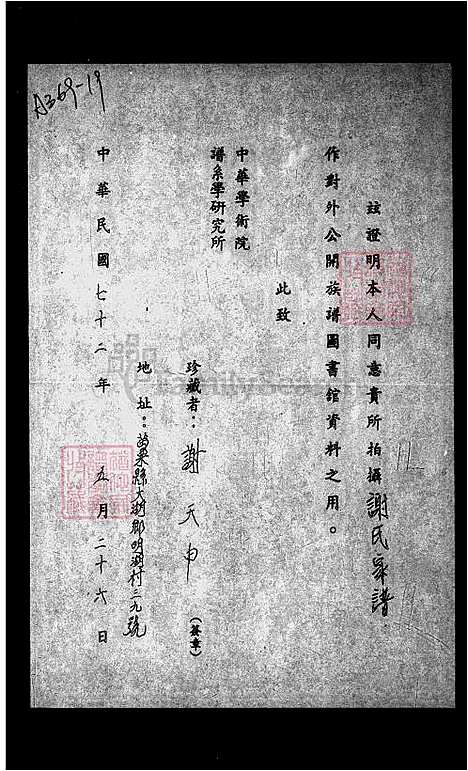 A369-19
玆證明本人同意貴所拍攝謝氏家譜
作對外公開族譜圖書館資料之用。
此致
中華學術院
譜系學研究所
珍藏者：謝天申（簽章）
地址：苗栗縣大湖鄉明湖村三九號
中華民國七十二年五月二十六日
FamilySearch